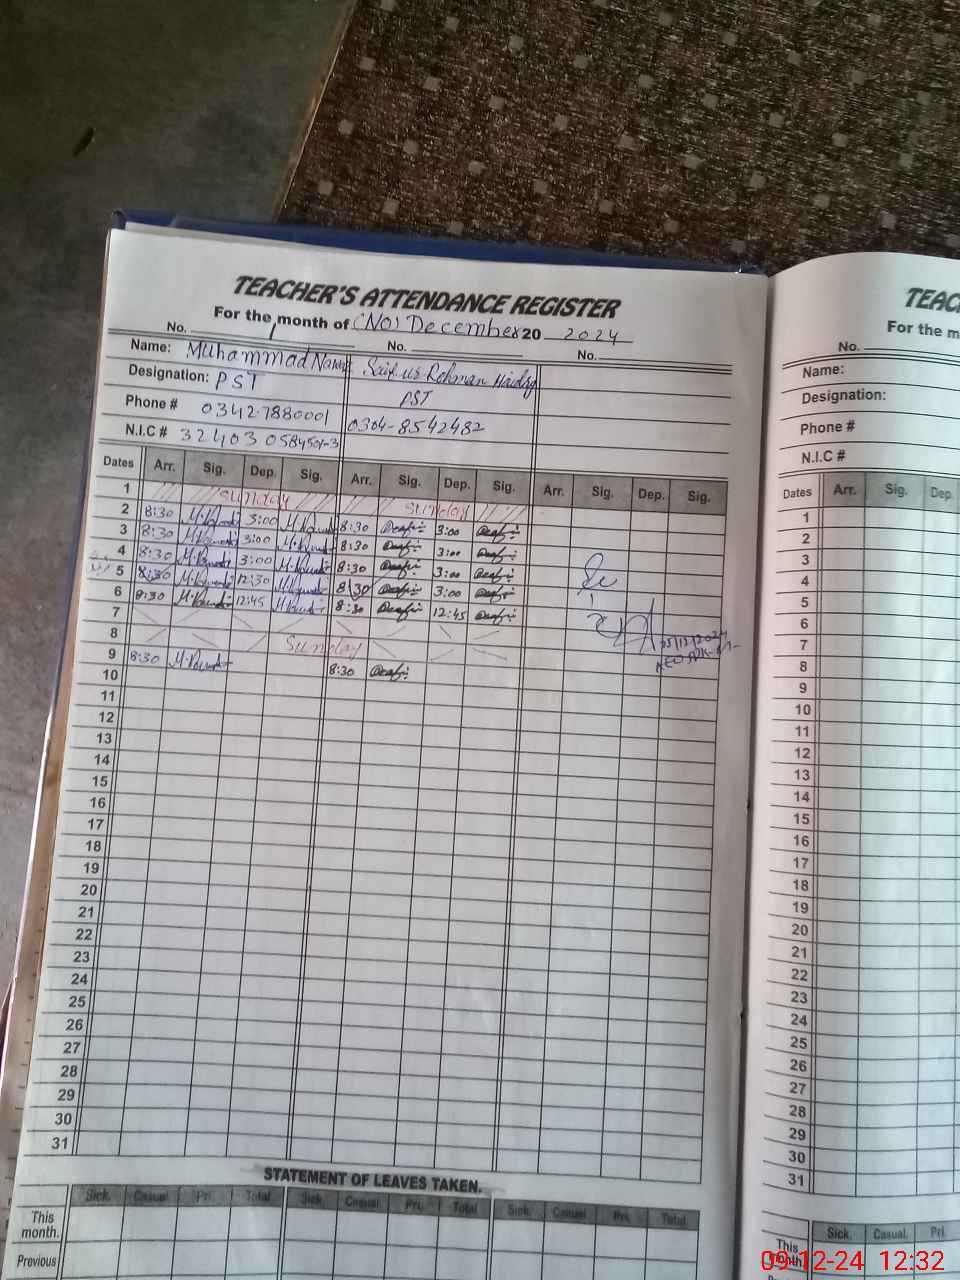 TEACHER'S ATTENDANCE REGISTER
For the month of (No) December 20 2024
No. No. No.
Name: Muhammad Saif ur Rehman
Designation: PST PST
Phone # 0342-7880001 0304-8542482
N.I.C # 32403
Dates Arr. Sig. Dep. Sig. Arr. Sig. Dep. Sig. Arr. Sig. Dep. Sig.
1 Sunday Sunday
2 8:30 3:00 8:30 3:00
3 8:30 3:00 8:30 3:00
4 8:30 3:00 8:30 3:00
5 8:30 12:30 8:30 3:00
6 8:30 12:45 8:30 12:45
7
8 Sunday
9 8:30 8:30
10
11
12
13
14
15
16
17
18
19
20
21
22
23
24
25
26
27
28
29
30
31
STATEMENT OF LEAVES TAKEN.
Sick. Casual. Pri. Total Sick. Casual. Pri. Total Sick. Casual. Pri. Total
This month.
Previous
TEAC
For the m
No.
Name:
Designation:
Phone #
N.I.C #
Dates Arr. Sig. Dep.
1
2
3
4
5
6
7
8
9
10
11
12
13
14
15
16
17
18
19
20
21
22
23
24
25
26
27
28
29
30
31
Sick. Casual. Pri.
This month.
09-12-24 12:32